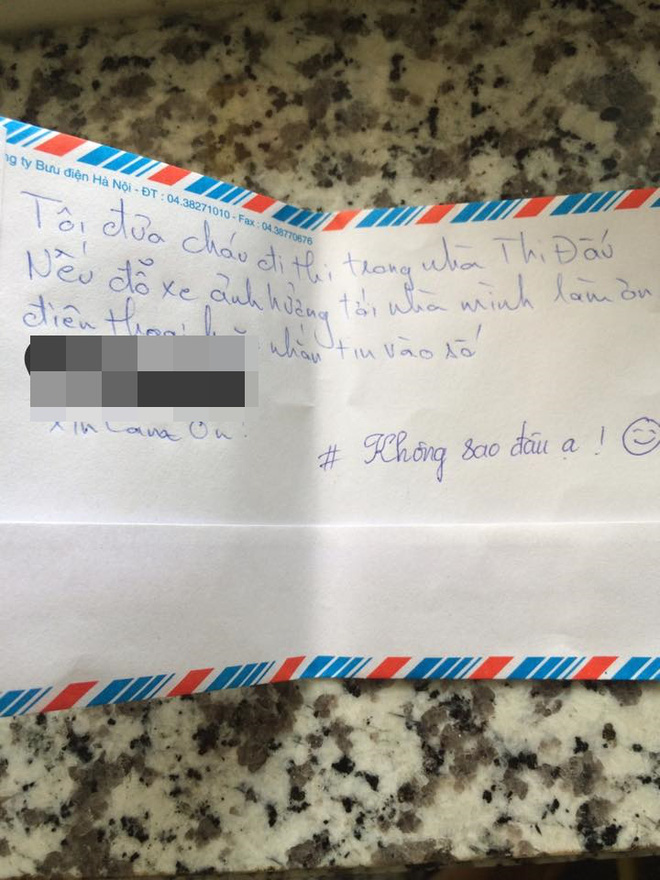 ng ty Bưu điện Hà Nội - ĐT : 04.38271010 - Fax : 04.38770676
Tôi đưa cháu đi thi trong nhà Thi Đấu
Nếu đỗ xe ảnh hưởng tới nhà mình làm ơn
điện thoại nhắn tin vào số
Xin cảm ơn!
# Không sao đâu ạ ! ☺